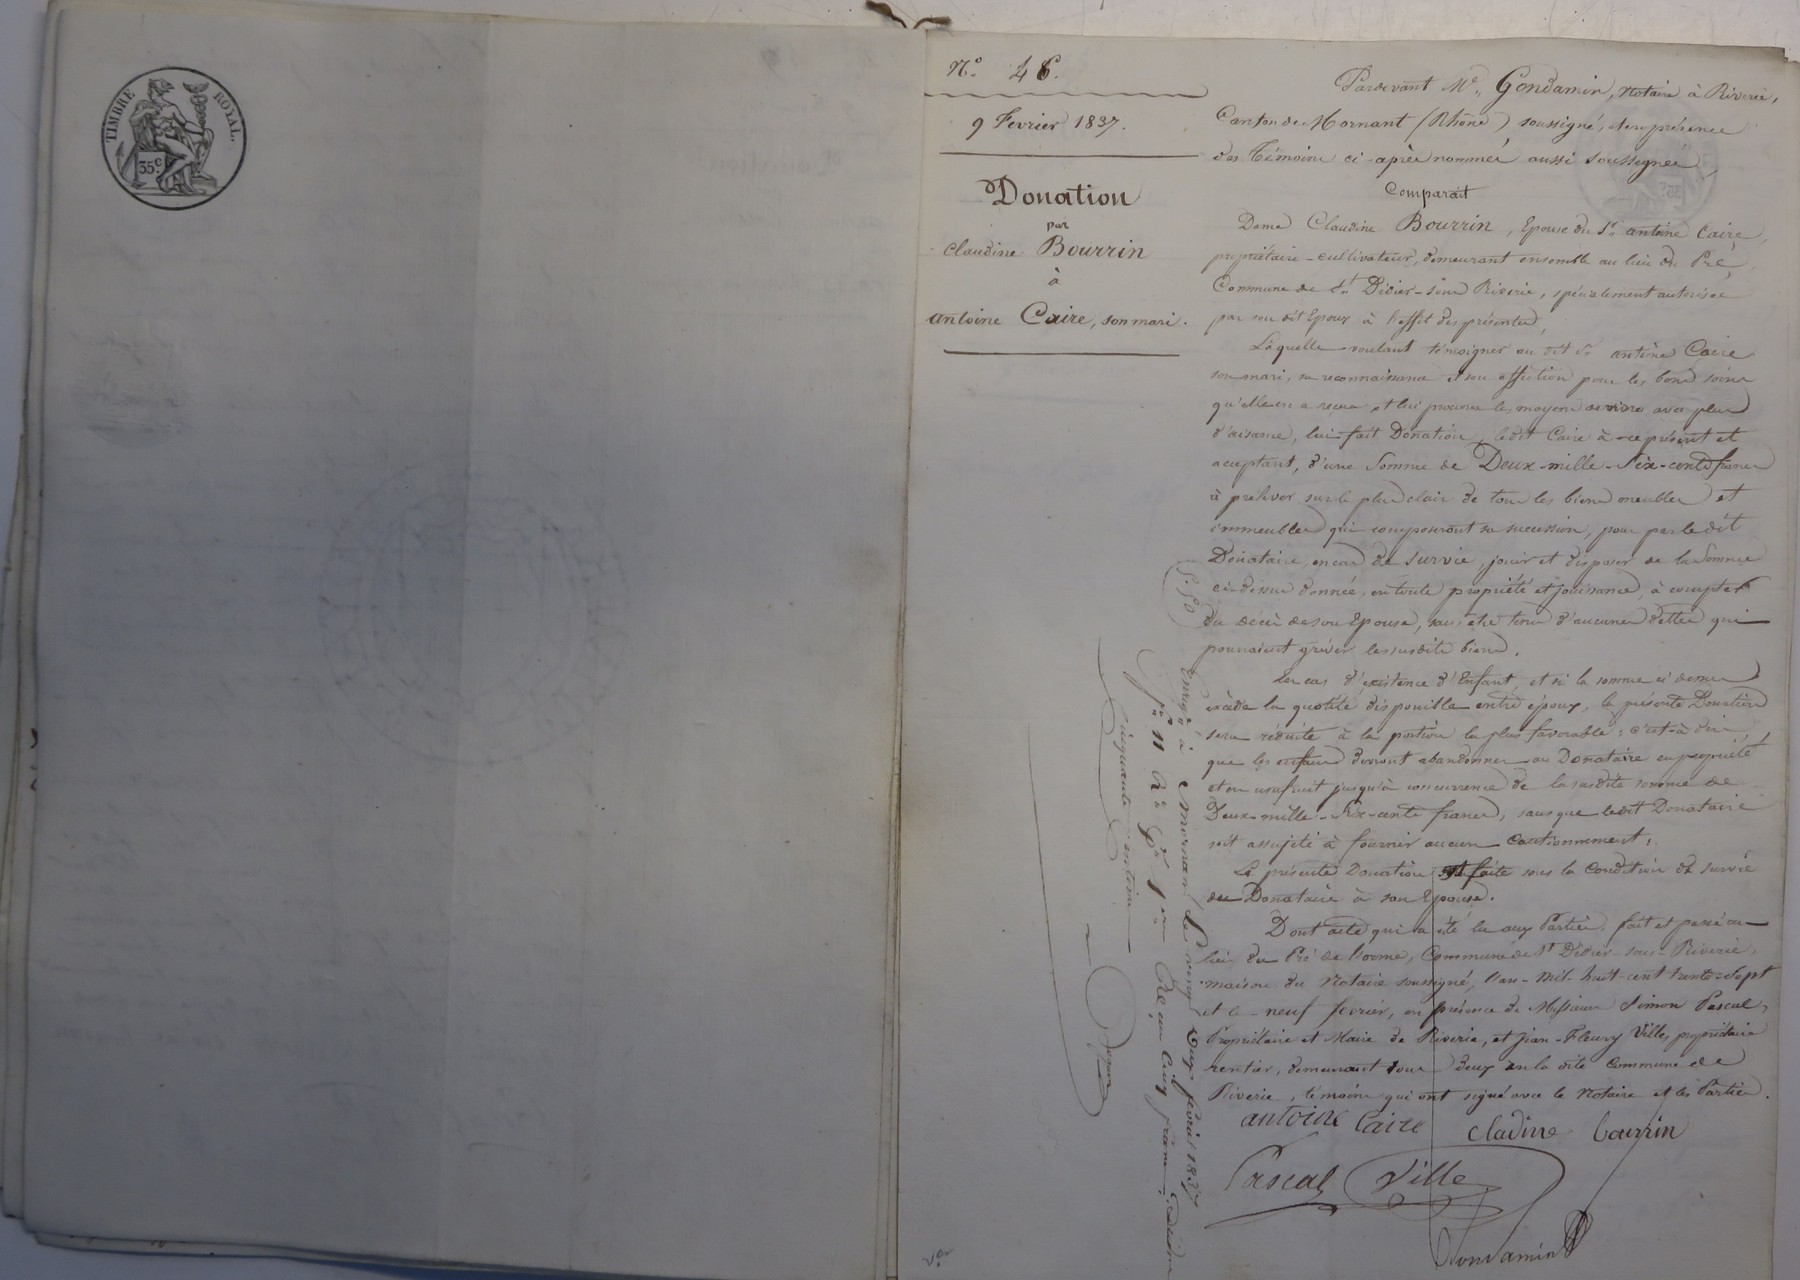 TIMBRE ROYAL.
35c.
N.° 46.
9 Fevrier 1837.
Donation
par
Claudine Bourrin
à
antoine Caire, son mari.
Pardevant Me. Gondamin, Notaire à Riverie,
Canton de Mornant (Rhône) soussigné, et en présence
des Témoins ci-après nommés aussi soussignés,
Comparait
Dame Claudine Bourrin, Epouse du Sr. antoine Caire,
propriétaire-cultivateur, demeurant ensemble au lieu du Pré,
Commune de St. Didier-sous Riverie, spécialement autorisée
par son dit Epoux à l'effet des présentes,
Laquelle voulant témoigner au dit Sr. antoine Caire
son mari, sa reconnaissance et son affection pour les bons soins
qu'elle en a reçus et lui procurer les moyens de vivre avec plus
d'aisance, lui fait Donation, le dit Caire à ce présent et
acceptant, d'une Somme de Deux-mille-Six-cents francs
à prélever sur le plus clair de tous les biens meubles et
immeubles qui composeront sa succession, pour par le dit
Donataire, en cas de survie, jouir et disposer de la Somme
ci-dessus donnée, en toute propriété et jouissance, à compter
du décès de son Epouse, sans être tenu d'aucunes dettes qui
pourraient grever les susdits biens.
Les cas d'existence d'Enfant, et si la somme ci-dessus
excède la quotité disponible entre époux, la présente Donation
sera réduite à la portion la plus favorable; c'est-à-dire,
que les enfans devront abandonner au Donataire en propriété
et en usufruit jusqu'à concurrence de la susdite somme de
Deux-mille-Six-cents francs, sans que ledit Donataire
soit assujeti à fournir aucun cautionnement.
La présente Donation est faite sous la Condition de survie
du Donataire à son Epouse.
Dont acte qui a été lu aux Parties, fait et passé au
lieu du Pré de Lorme, Commune de St. Didier-sous-Riverie,
maison du Notaire soussigné, l'an-mil-huit-cent trente-Sept
et le neuf fevrier, en présence de Messieurs Simon Pascal,
Propriétaire et Maire de Riverie, et Jean-Fleury Ville, propriétaire
rentier, demeurant tous deux en la dite Commune de
Riverie, témoins qui ont signé avec le Notaire et les Parties.
antoine Caire cladine bourrin
Pascal Ville
Gondamin
5.50
Enregé à Mornant le vingt fevrier 1837
fo 11 Ro Ce 1ere Reçu cinq francs, décime
cinquante centimes